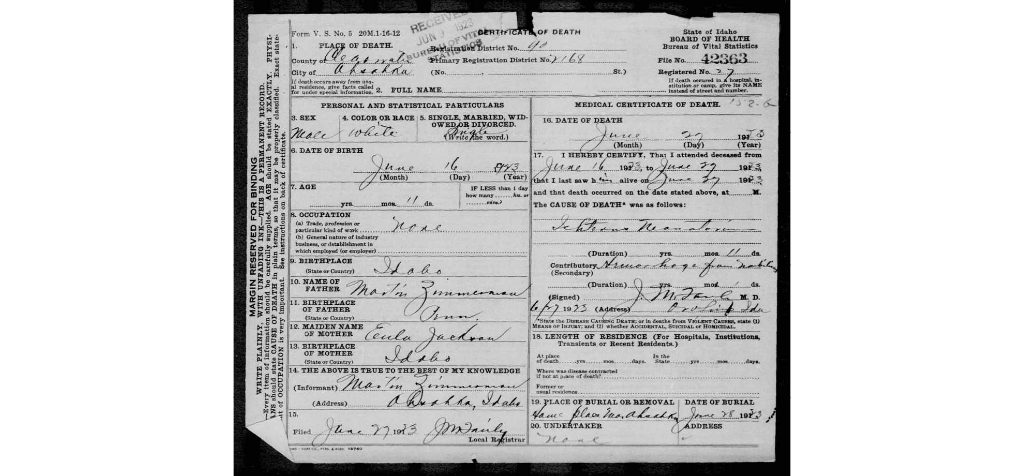 Form V. S. No. 5 20M.1-16-12
RECEIVED
JUN 1923
BUREAU OF VITAL
STATISTICS
CERTIFICATE OF DEATH
State of Idaho
BOARD OF HEALTH
Bureau of Vital Statistics
1. PLACE OF DEATH.
Registration District No. 90
County of Clearwater
Primary Registration District No. 2168
File No. 42363
City of Ahsahka
(No. St.)
Registered No. 27
If death occurs away from usual residence, give facts called for under special information.
2. FULL NAME
If death occured in a hospital, institution or camp, give its NAME instead of street and number.
PERSONAL AND STATISTICAL PARTICULARS
3. SEX
Male
4. COLOR OR RACE
White
5. SINGLE, MARRIED, WIDOWED OR DIVORCED.
(Write the word.)
Single
6. DATE OF BIRTH
June 16 1923
(Month) (Day) (Year)
7. AGE
IF LESS than 1 day
how many hrs. or
mins.?
yrs. mos. 11 ds.
8. OCCUPATION
(a) Trade, profession or
particular kind of work None
(b) General nature of industry
business, or establishment in
which employed (or employer)
9. BIRTHPLACE
(State or Country) Idaho
10. NAME OF
FATHER Martin Zimmerman
11. BIRTHPLACE
OF FATHER
(State or Country)
12. MAIDEN NAME
OF MOTHER Eula Jackson
13. BIRTHPLACE
OF MOTHER
(State or Country) Idaho
14. THE ABOVE IS TRUE TO THE BEST OF MY KNOWLEDGE
(Informant) Martin Zimmerman
(Address) Ahsahka, Idaho
15.
Filed June 27 1923
Local Registrar
MEDICAL CERTIFICATE OF DEATH.
16. DATE OF DEATH
June 27 1923
(Month) (Day) (Year)
17. I HEREBY CERTIFY, That I attended deceased from
June 16 1923, to June 27 1923,
that I last saw him alive on June 27 1923,
and that death occurred on the date stated above, at M.
The CAUSE OF DEATH* was as follows:
(Duration) yrs. mos. 11 ds.
Contributory
(Secondary)
(Duration) yrs. mos. ds.
(Signed) M. D.
6/27 1923 (Address)
*State the DISEASE CAUSING DEATH; or in deaths from VIOLENT CAUSES, state (1)
MEANS OF INJURY; and (2) whether ACCIDENTAL, SUICIDAL OR HOMICIDAL.
18. LENGTH OF RESIDENCE (For Hospitals, Institutions,
Transients, or Recent Residents.)
At place
of death yrs. mos. days.
In the
State yrs. mos. days.
Where was disease contracted
if not at place of death?
Former or
usual residence
19. PLACE OF BURIAL OR REMOVAL
DATE OF BURIAL
June 28 1923
20. UNDERTAKER
None
ADDRESS
MARGIN RESERVED FOR BINDING
WRITE PLAINLY, WITH UNFADING INK—THIS IS A PERMANENT RECORD.